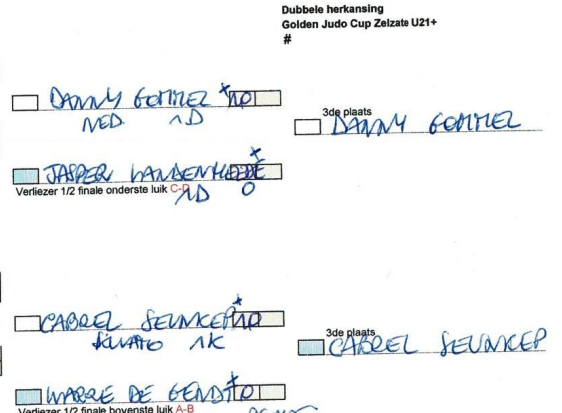 Dubbele herkansing
Golden Judo Cup Zelzate U21+
#
DANNY GOMMEL 10
NED 1D
3de plaats
DANNY GOMMEL
JASPER VANDENHEEDE
Verliezer 1/2 finale onderste luik C-D
1D 0
CABREL SEUNKEP 10
1K
3de plaats
CABREL SEUNKEP
WARRE DE GENDT 0
Verliezer 1/2 finale bovenste luik A-B